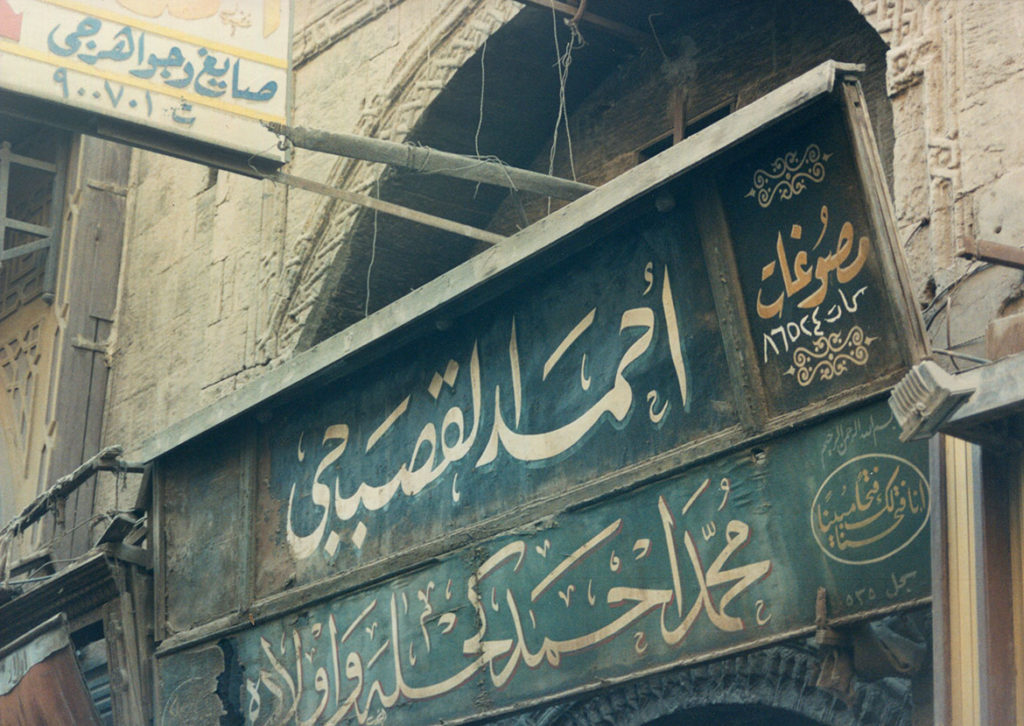 صايغ وجواهرجى
ت ٩٠٠٧٠١
مصوغات
س.ت ٨٦٥٢٤
أحمد القصبجى
بسم الله الرحمن الرحيم
انا فتحنا لك فتحا مبينا
محمد احمد كحله واولاده
سجل ٥٣٥